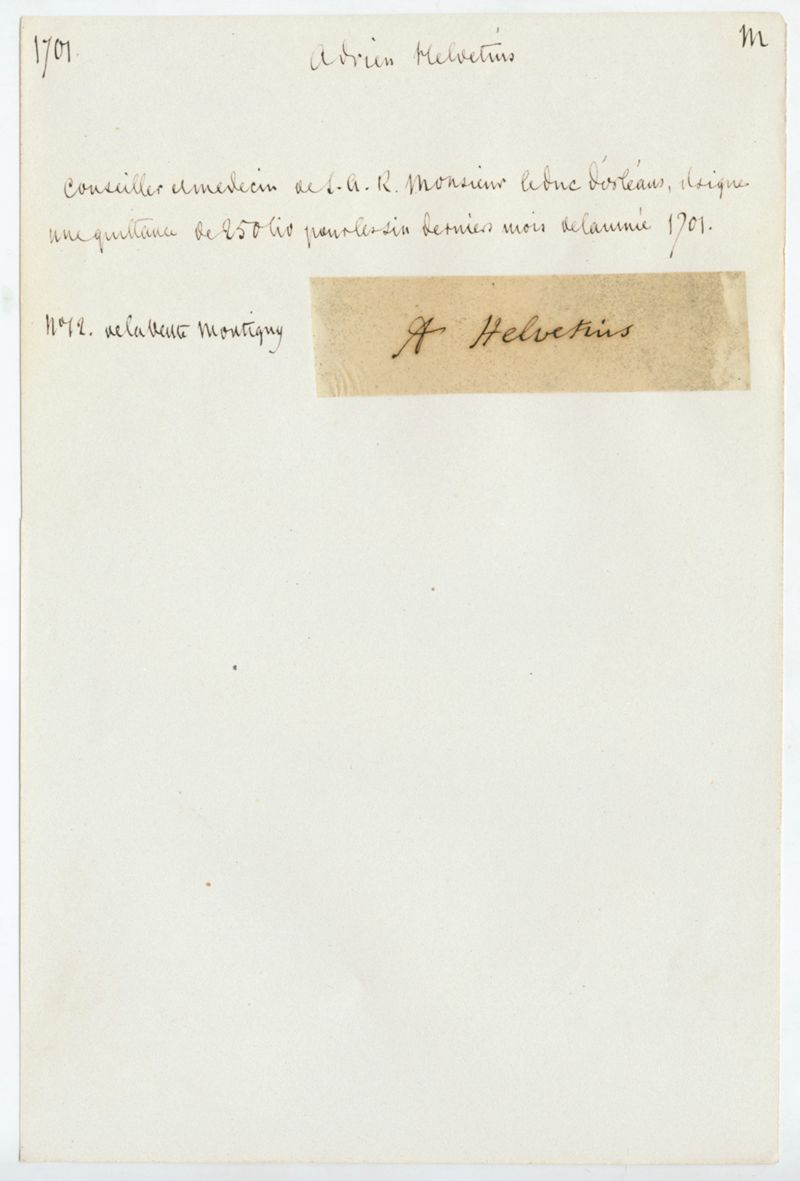 1701.
Adrien Helvetius
M
Conseiller et medecin de S. A. R. Monsieur le duc d'orléans, il signe
une quittance de 250 liv pour les six derniers mois de l'année 1701.
No 12. de la vente Montigny
A Helvetius